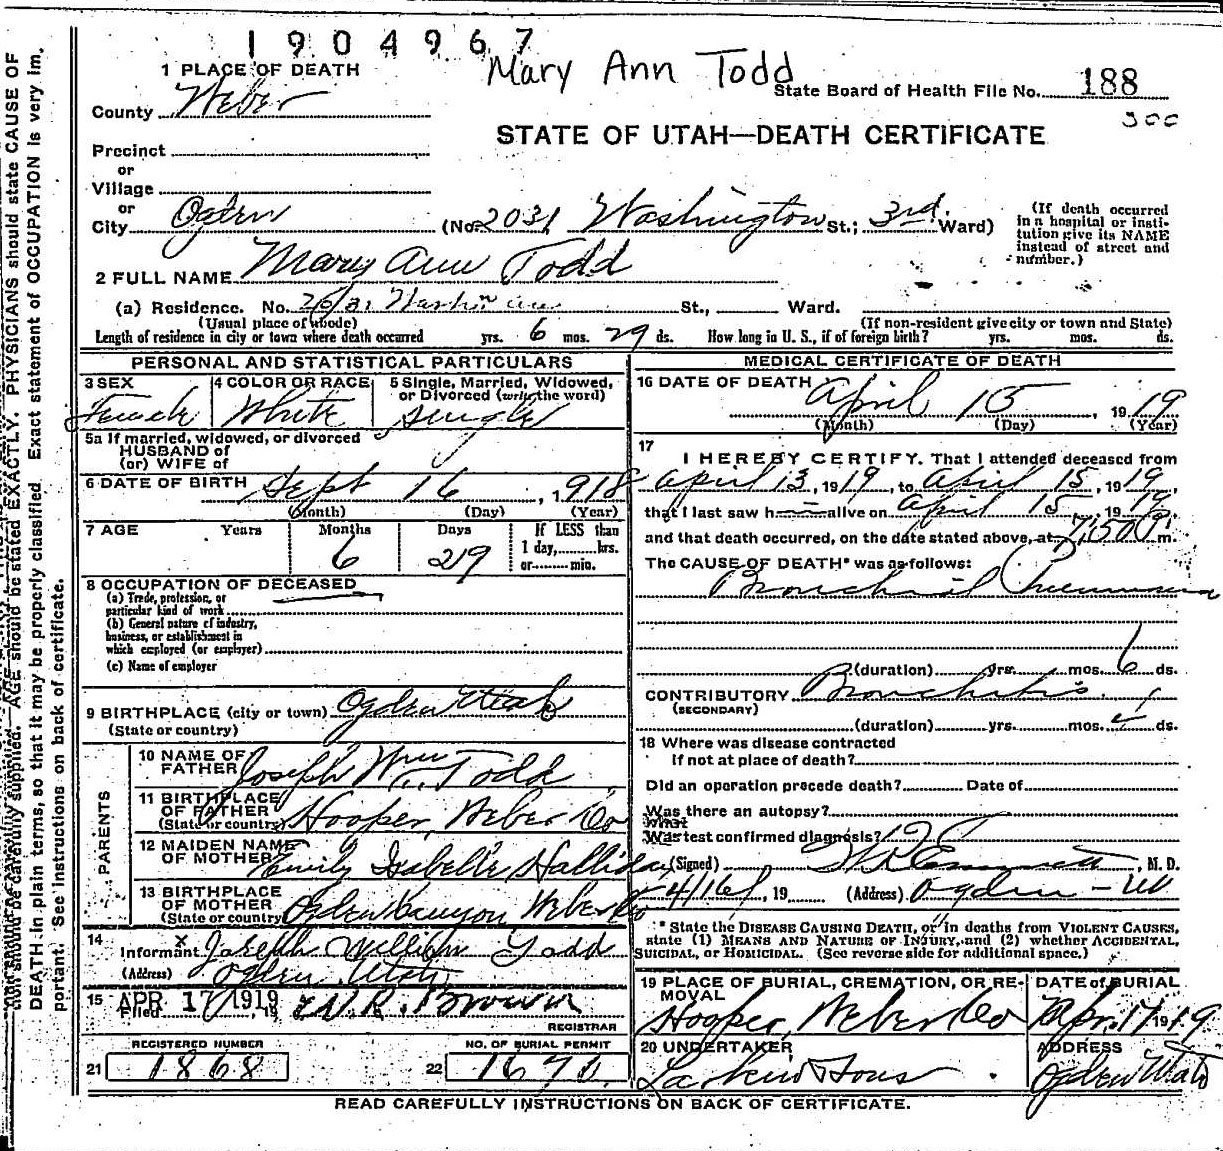 1904967
Mary Ann Todd
1 PLACE OF DEATH
State Board of Health File No. 188
County Weber
300
STATE OF UTAH—DEATH CERTIFICATE
Precinct
or
Village
or
City Ogden (No. 2031 Washington St.; 3rd Ward)
(If death occurred in a hospital or institution give its NAME instead of street and number.)
2 FULL NAME Mary Ann Todd
(a) Residence. No. 2031 Wash'n ave St., Ward.
(Usual place of abode) (If non-resident give city or town and State)
Length of residence in city or town where death occurred yrs. 6 mos. 29 ds. How long in U. S., if of foreign birth? yrs. mos. ds.
PERSONAL AND STATISTICAL PARTICULARS
3 SEX Female
4 COLOR OR RACE White
5 Single, Married, Widowed, or Divorced (write the word) single
5a If married, widowed, or divorced
HUSBAND of
(or) WIFE of
6 DATE OF BIRTH Sept 16, 1918
(Month) (Day) (Year)
7 AGE Years Months 6 Days 29 If LESS than 1 day, hrs. or min.
8 OCCUPATION OF DECEASED
(a) Trade, profession, or particular kind of work
(b) General nature of industry, business, or establishment in which employed (or employer)
(c) Name of employer
9 BIRTHPLACE (city or town) Ogden Utah
(State or country)
PARENTS
10 NAME OF FATHER Joseph Wm Todd
11 BIRTHPLACE OF FATHER (State or country) Hooper, Weber Co
12 MAIDEN NAME OF MOTHER Emily Isabelle Halliday
13 BIRTHPLACE OF MOTHER (State or country) Ogden Canyon, Weber Co
14 Informant X Joseph William Todd
(Address) Ogden Utah
15 Filed APR 17 1919 19 W.R. Brown
REGISTRAR
REGISTERED NUMBER
21 1868
NO. OF BURIAL PERMIT
22
MEDICAL CERTIFICATE OF DEATH
16 DATE OF DEATH April 15, 1919
(Month) (Day) (Year)
17 I HEREBY CERTIFY. That I attended deceased from
April 13, 1919, to April 15, 1919,
that I last saw h alive on April 15, 1919
and that death occurred, on the date stated above, at 7:50 P m.
The CAUSE OF DEATH* was as follows:
Bronchial Pneumonia
(duration) yrs. mos. 6 ds.
CONTRIBUTORY Bronchitis
(SECONDARY)
(duration) yrs. mos. ds.
18 Where was disease contracted
If not at place of death?
Did an operation precede death? Date of
Was there an autopsy?
What test confirmed diagnosis?
(Signed) Emmett, M. D.
4/16, 19 (Address) Ogden - Ut
* State the DISEASE CAUSING DEATH, or in deaths from VIOLENT CAUSES, state (1) MEANS AND NATURE OF INJURY, and (2) whether ACCIDENTAL, SUICIDAL, or HOMICIDAL. (See reverse side for additional space.)
19 PLACE OF BURIAL, CREMATION, OR REMOVAL Hooper, Weber Co
DATE of BURIAL Apr. 17 1919
20 UNDERTAKER Larkin & Sons
ADDRESS Ogden Utah
READ CAREFULLY INSTRUCTIONS ON BACK OF CERTIFICATE.
should be carefully supplied. AGE should be stated EXACTLY. PHYSICIANS should state CAUSE OF
DEATH in plain terms, so that it may be properly classified. Exact statement of OCCUPATION is very im-
portant. See instructions on back of certificate.